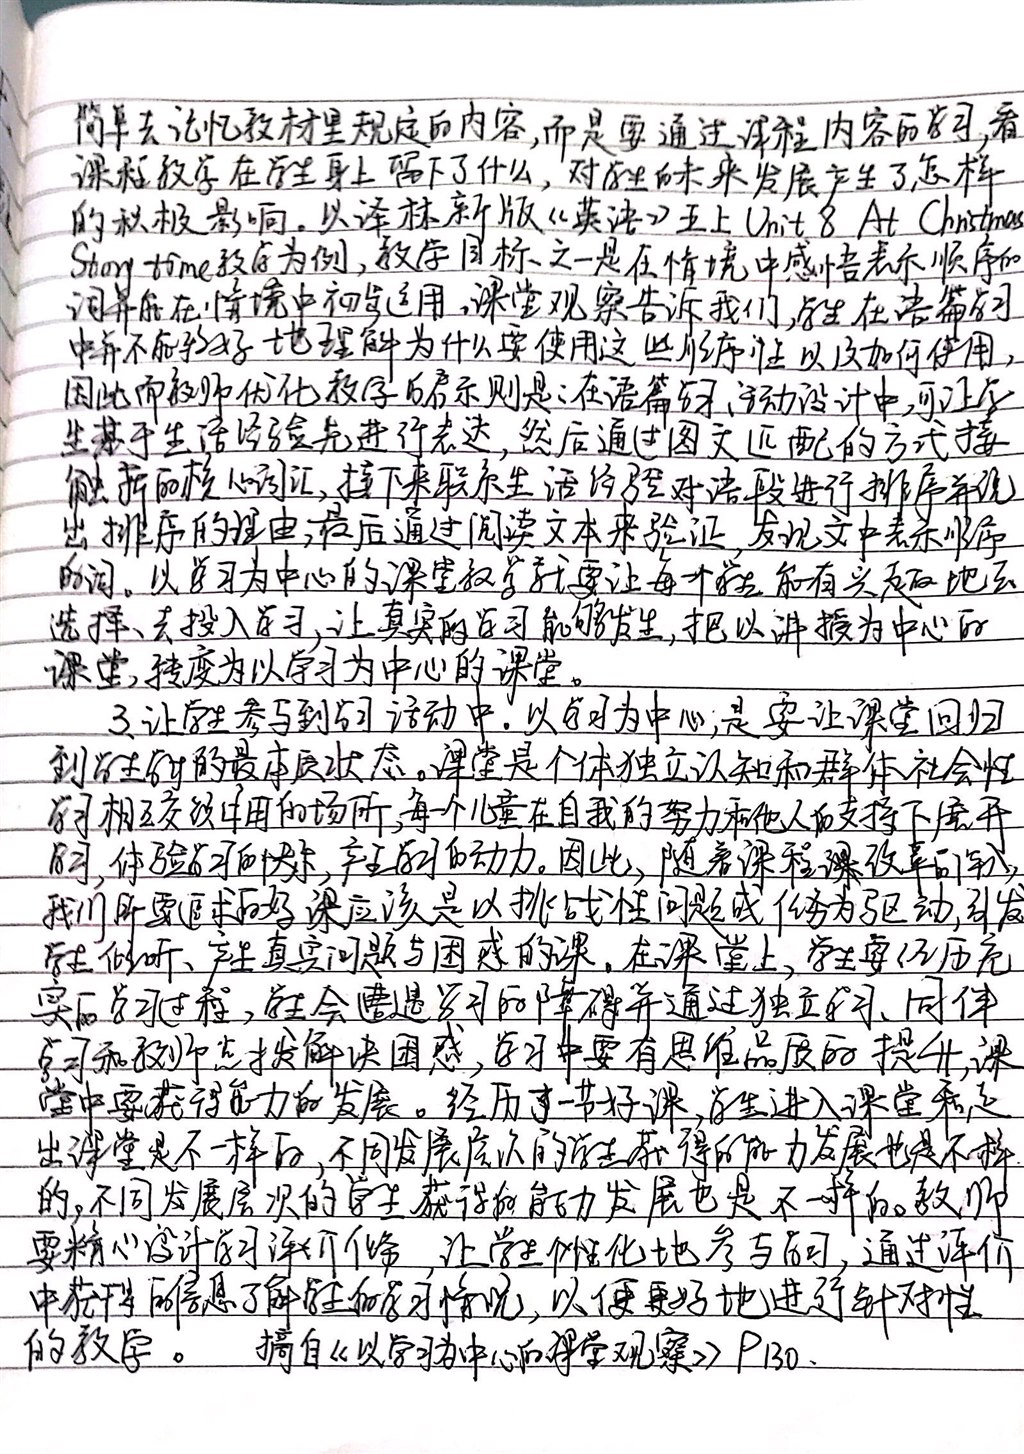 简单去记忆教材里规定的内容,而是要通过课程内容的学习,看
课程教学在学生身上留下了什么,对学生的未来发展产生了怎样
的积极影响。以译林新版《英语》五上Unit 8 At Christmas
Story time教学为例,教学目标之一是在情境中感悟表示顺序的
词并能在情境中初步运用。课堂观察告诉我们,学生在语篇学习
中并不能较好地理解为什么要使用这些顺序性以及如何使用,
因此而教师优化教学的启示则是:在语篇学习活动设计中,可让学
生基于生活经验先进行表达,然后通过图文匹配的方式接
触新的核心词汇,接下来联系生活经验对语段进行排序并说
出排序的理由,最后通过阅读文本来验证,发现文中表示顺序
的词。以学习为中心的课堂教学就要让每个学生能有兴趣地去
选择、去投入学习,让真实的学习能够发生,把以讲授为中心的
课堂,转变为以学习为中心的课堂。
3、让学生参与到学习活动中。以学习为中心,是要让课堂回归
到学生学习的最本质状态。课堂是个体独立认知和群体社会性
学习相互交织作用的场所,每一个儿童在自我的努力和他人的支持下展开
学习,体验学习的快乐,产生学习的动力。因此,随着课程课改革的深入,
我们所要追求的好课应该是以挑战性问题或任务为驱动,引发
学生倾听、产生真实问题与困惑的课。在课堂上,学生要经历充
实的学习过程,学生会遭遇学习的障碍并通过独立学习、同伴
学习和教师点拨解决困惑,学习中要有思维品质的提升,课
堂中要获得能力的发展。经历了一节好课,学生进入课堂和走
出课堂是不一样的,不同发展层次的学生获得的能力发展也是不样
的。不同发展层次的学生获得的能力发展也是不一样的。教师
要精心设计学习评价任务,让学生个性化地参与学习,通过评价
中获得的信息了解学生的学习情况,以便更好地进行针对性
的教学。 摘自《以学习为中心的课堂观察》P130.